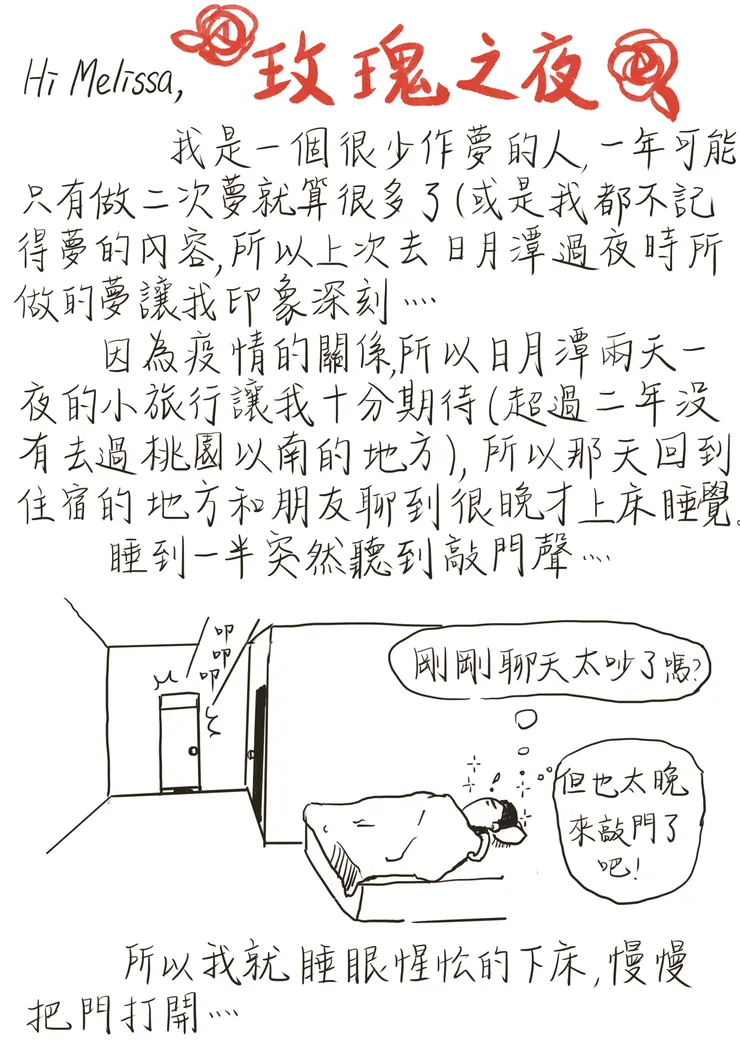 玫瑰之夜
Hi Melissa,
我是一個很少作夢的人,一年可能
只有做二次夢就算很多了(或是我都不記
得夢的內容,所以上次去日月潭過夜時所
做的夢讓我印象深刻....
因為疫情的關係,所以日月潭兩天一
夜的小旅行讓我十分期待(超過二年没
有去過桃園以南的地方),所以那天回到
住宿的地方和朋友聊到很晚才上床睡覺。
睡到一半突然聽到敲門聲....
叩
叩
叩
剛剛聊天太吵了嗎?
但也太晚
來敲門了
吧!
所以我就睡眼惺忪的下床,慢慢
把門打開....